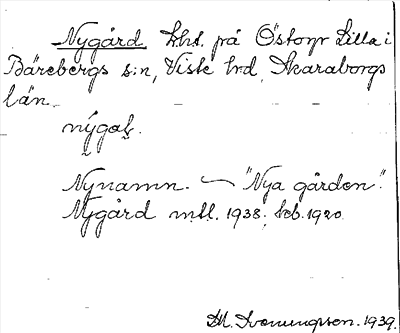 Nygård lht. på Östorp Lilla i
Bärebergs s:n, Viste hrd, Skaraborgs
län.
nýgaḷ.
Nynamn. — "Nya gården".
Nygård mtl. 1938; leb. 1920.
M. 1939.